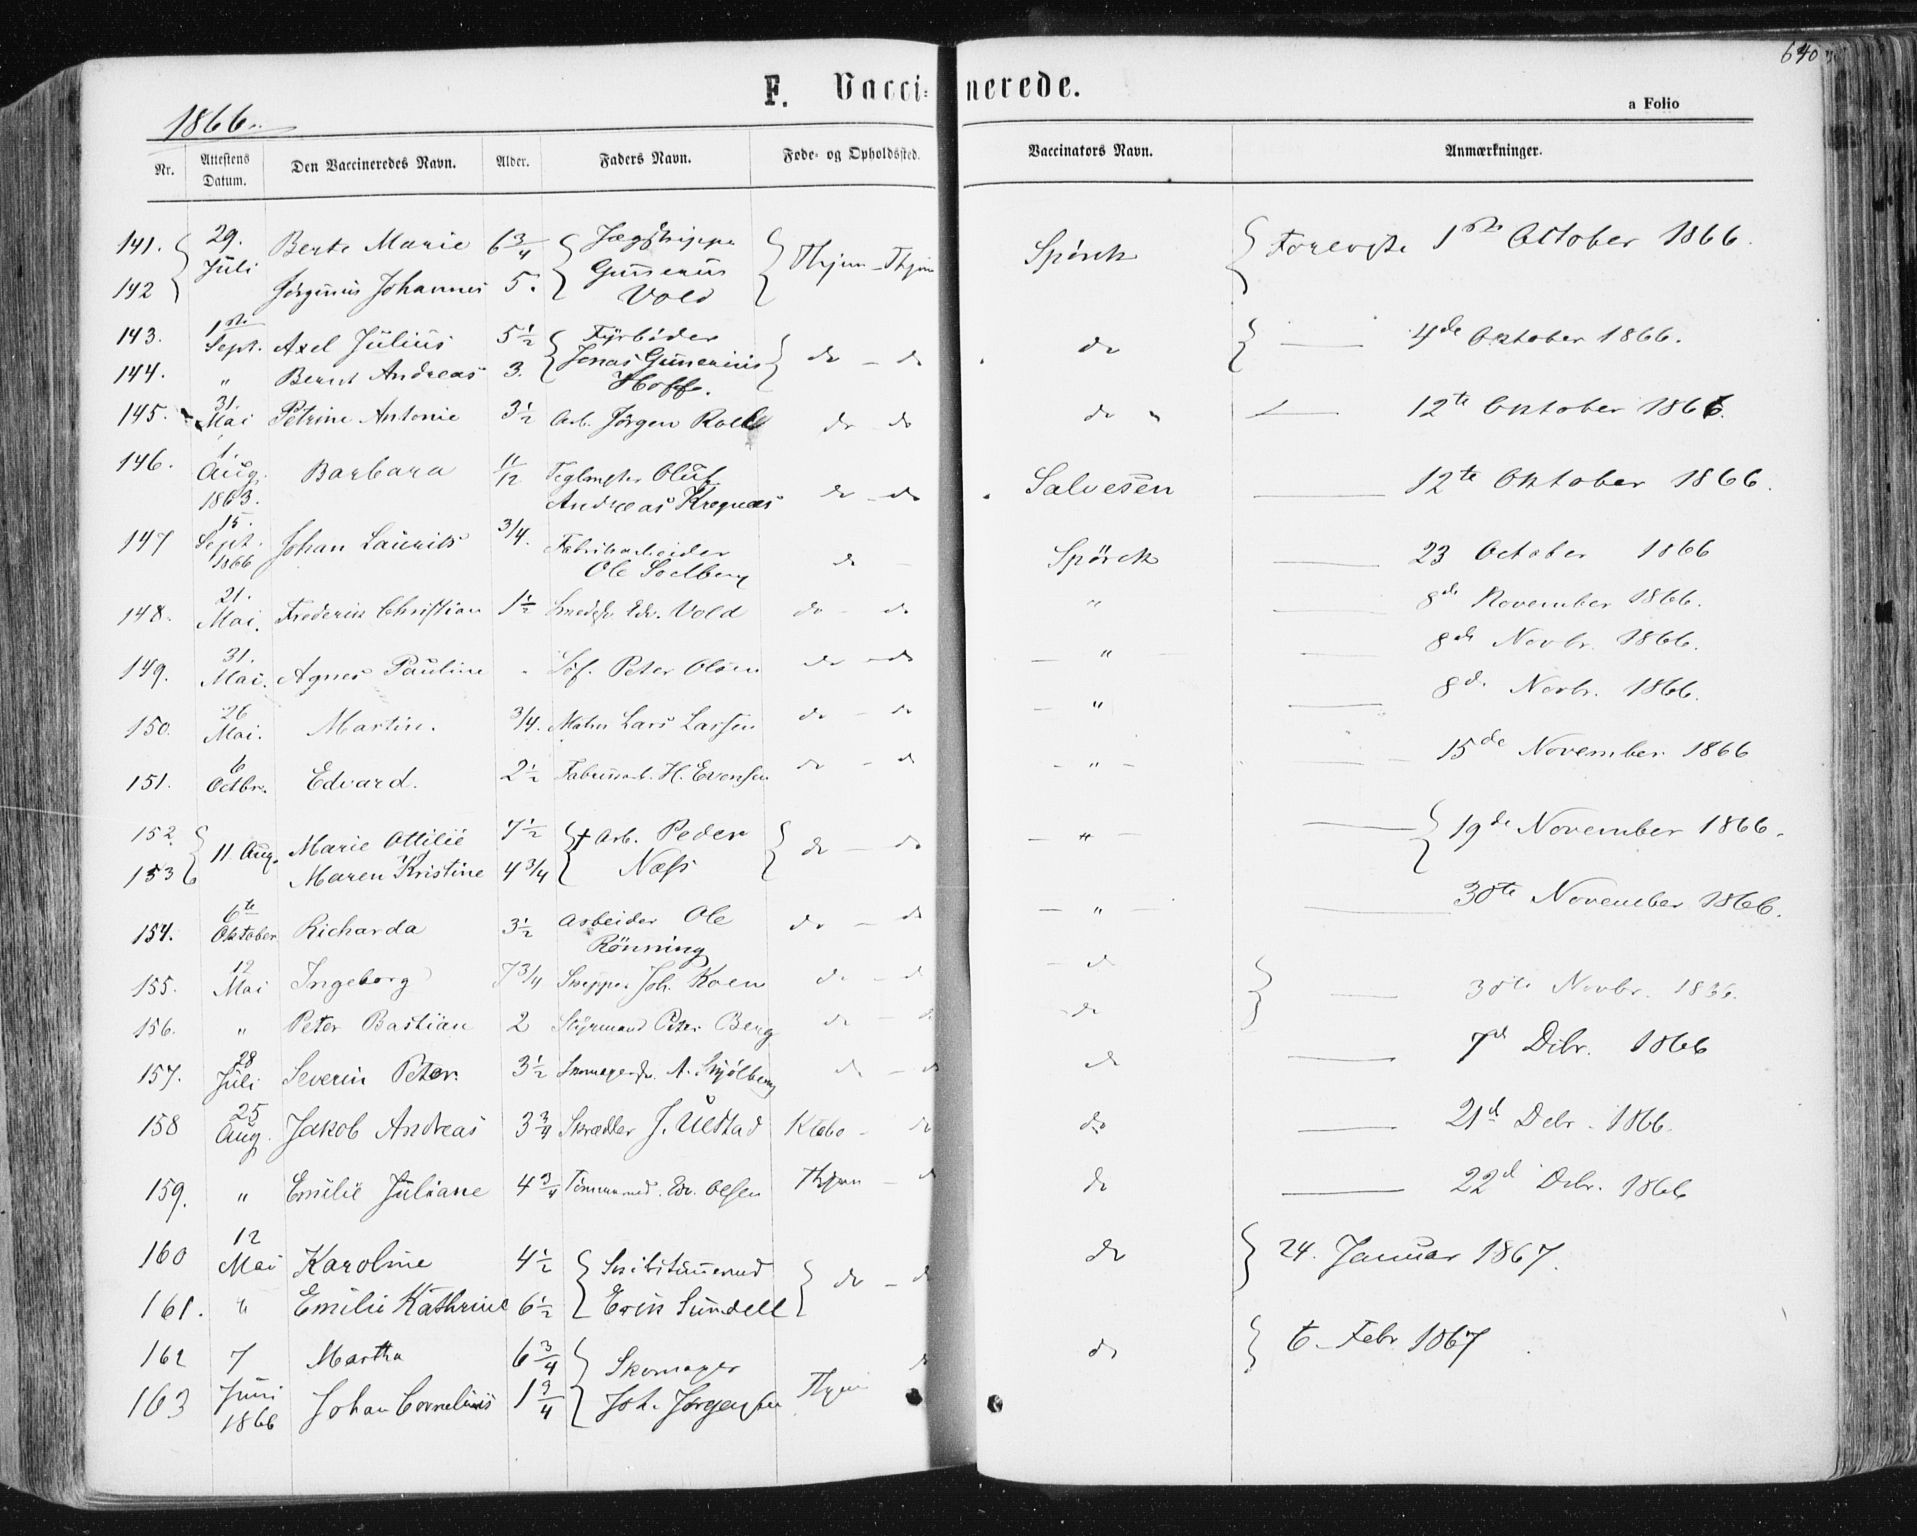 640
F. Vaccinerede.
a Folio
1866.
Nr. Attestens Datum. Den Vaccineredes Navn. Alder. Faders Navn. Føde- og Opholdssted. Vaccinators Navn. Anmærkninger.
141. 29. Juli Berte Marie 6 3/4 Spörck Forevist 1ste October 1866.
142 " Jørginus Johannes 5. Gunerius Vold
143. 1st. Sept. Axel Julius 5 1/2 Fyrbøder do - do do 4de Oktober 1866.
144. " Bernt Andreas 3. Jonas Gunerius Hoff.
145. 31. Mai Petrine Antonie 3 1/2 Arb. Jørgen do - do do " 12te Oktober 1866.
146. 1. Aug. 1863. Barbara 11/12 Oluf Andreas Kregnæs do - do Salvesen 12te Oktober 1866.
147 15. Sept. 1866 Johan Laurits 3/4. Fabrikarbeider Ole Soelberg do - Spörck 23 October 1866
148. 21. Mai. Frederik Christian 1 1/2 Edv. Vold do - do " 8de November 1866.
149. 31. Mai. Agnes Pauline " Peter Olsen do - do " 8de Novbr. 1866.
150. 26 Mai. Martin. 3/4. Lars Larsen do - do " 8de Novbr. 1866.
151. 6 Octbr. Edvard. 2 1/2 H. Evensen do - do - " - 15de November 1866
152. 11 Aug. Marie Ottilie 7 1/2 † Arb. Peder Næss do - do - " - 19de November 1866.
153 Maren Kristine 4 3/4
154. 6te Oktober Richarda 3 1/2 Arbeider Ole Rönning do - do - " - 30te November 1866.
155. 12 Mai Ingeborg 7 3/4 Joh. Koen do - d - do 30te Novbr. 1836.
156. " Peter Bastian 2 Styrmand Peter Berg do - d do
157. 28 Juli Severin Peter. 3 1/2 do - do do 7d Dcbr. 1866
158 25 Aug. Jakob Andreas 3 3/4 Skrædder J. Ulstad Klæbo - do do 21d Debr. 1866.
159. " Emilie Juliane 4 3/4 Tømmermd. Edv. Olsen - d do 22d Debr. 1866
160 12 Mai Karoline 4 1/2 Skibstømermd do - do do 24. Januar 1867.
161. " Emilie Kathrine 6 1/2 Erik Sundell
162 7 Martha 6 3/4 Skomager do do 6 - Febr 1867
163 Juni 1866 Johan Cornelius 1 3/4 Joh. Jørgensen